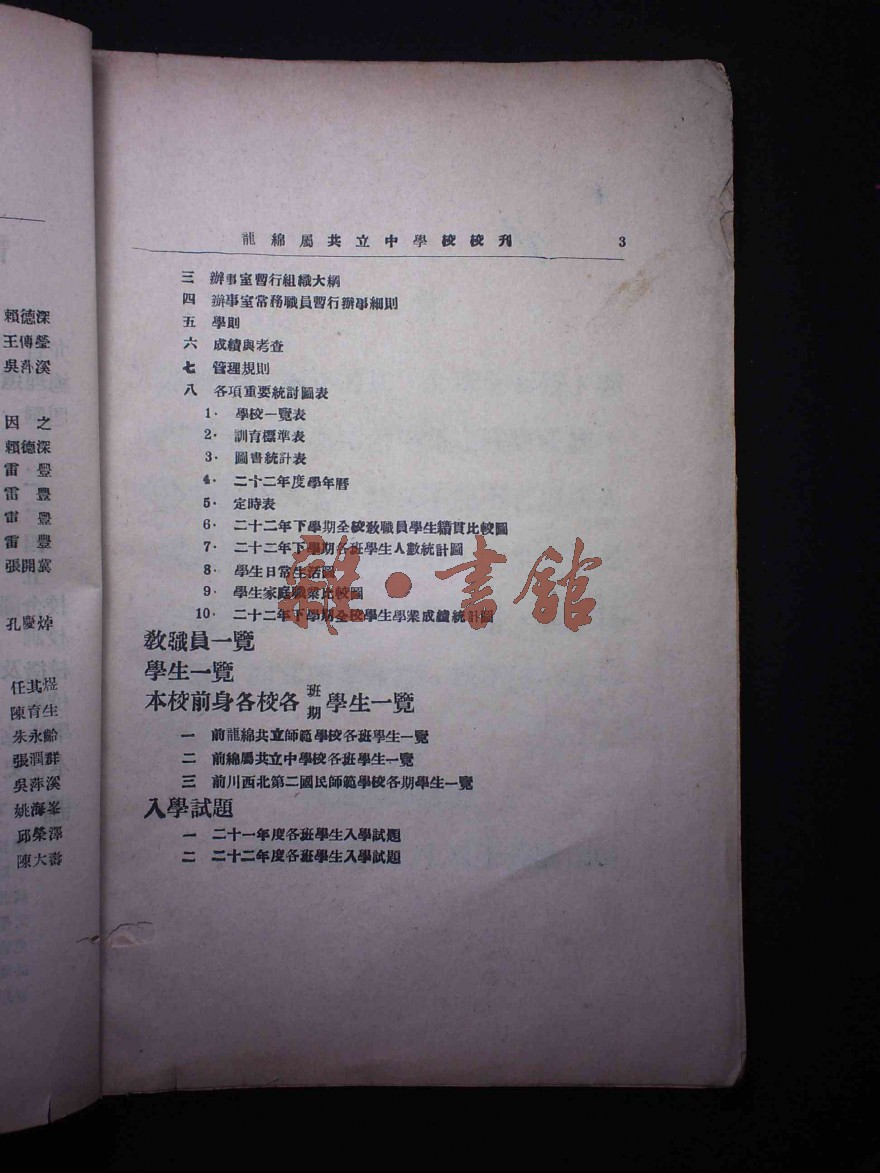 賴德深
王傳瑩
吳萍溪
因　之
賴德深
雷　豐
雷　豐
雷　豐
雷　豐
張開冀
孔慶焯
任其煜
陳育生
朱永齡
張潤群
吳萍溪
姚海峯
邱榮澤
陳大壽
龍綿屬共立中學校校刊　3
三　辦事室暫行組織大綱
四　辦事室常務職員暫行辦事細則
五　學則
六　成績與考查
七　管理規則
八　各項重要統計圖表
1．學校一覽表
2．訓育標準表
3．圖書統計表
4．二十二年度學年曆
5．定時表
6．二十二年下學期全校敎職員學生籍貫比較圖
7．二十二年下學期各班學生人數統計圖
8．學生日常生活圖
9．學生家庭職業比較圖
10．二十二年下學期全校學生學業成績統計圖
敎職員一覽
學生一覽
本校前身各校各班期學生一覽
一　前龍綿共立師範學校各班學生一覽
二　前綿屬共立中學校各班學生一覽
三　前川西北第二國民師範學校各期學生一覽
入學試題
一　二十一年度各班學生入學試題
二　二十二年度各班學生入學試題
雜·書館